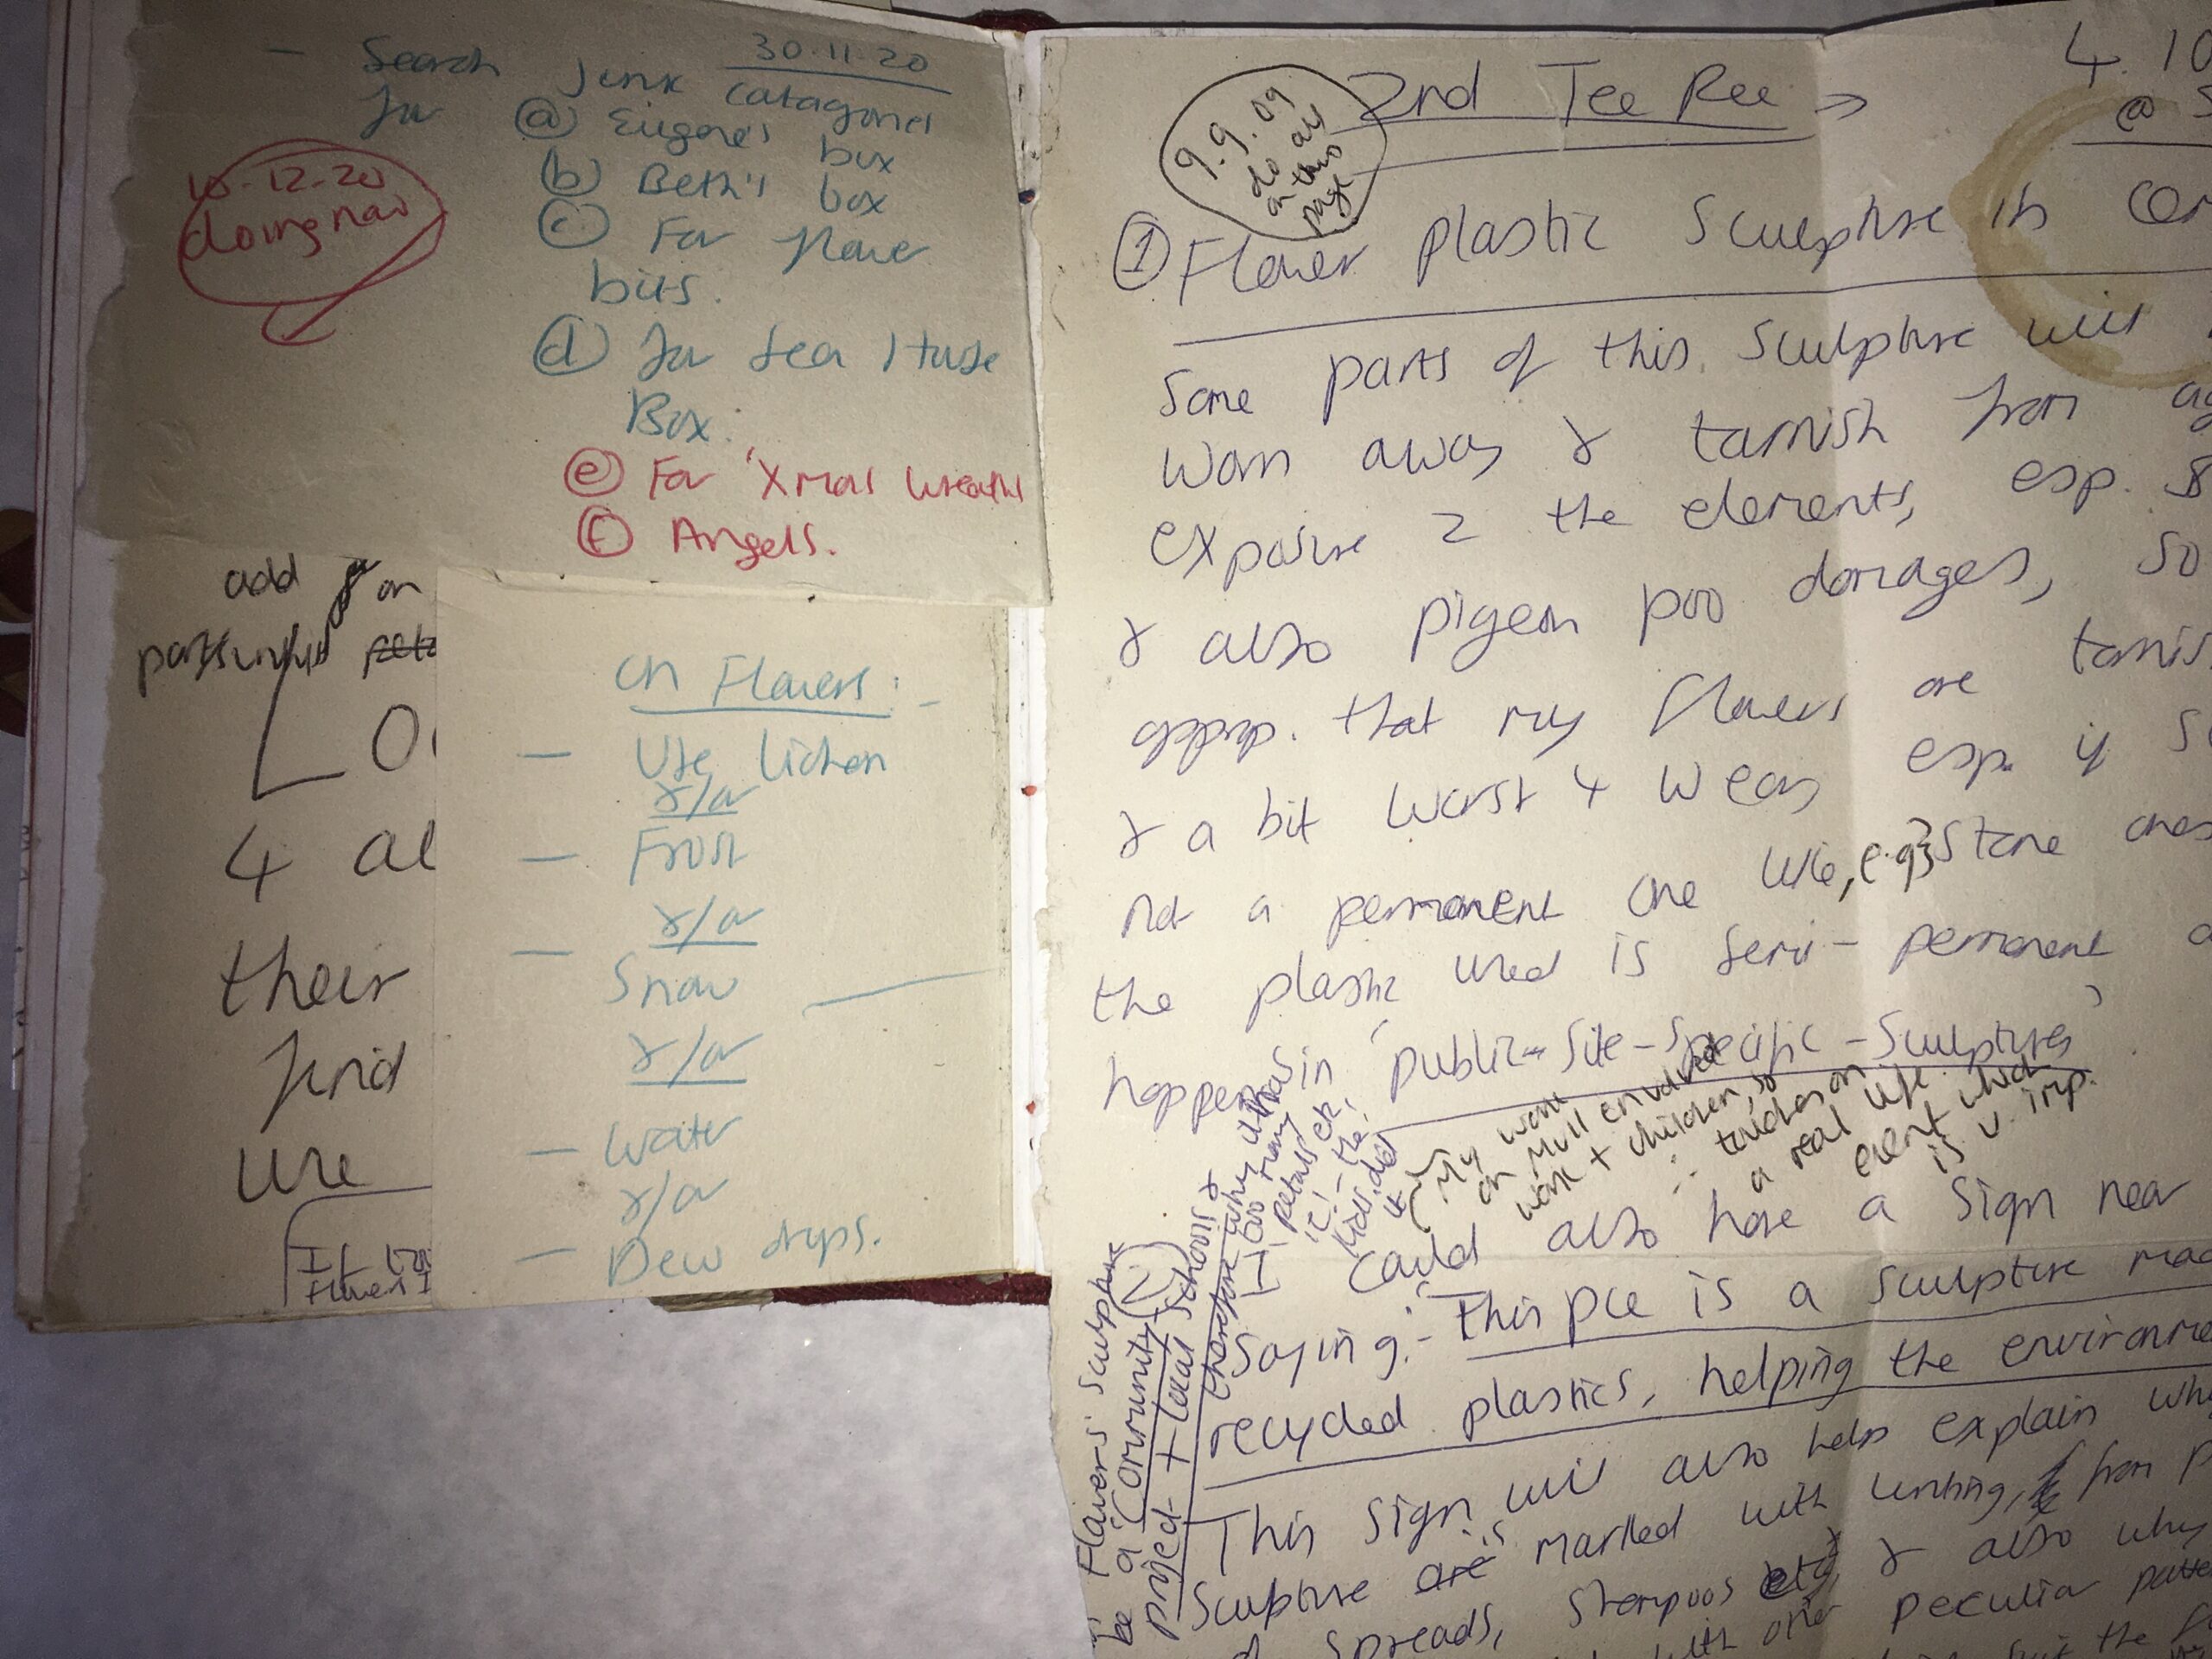 30.11.20
- Search Junk Catagories
for (a) Eugene's box
(b) Beth's box
(c) For flower
bits.
(d) for Sea Horse
Box.
(e) For 'Xmas wreaths
(f) Angels.
10-12-20
doing now
add on
4 al
their
find
use
on Flowers:-
- Use lichen
&/or
- Frost
&/or
- Snow
&/or
- Water
&/or
- Dew drops.
9.9.09
do all
on this
page
2nd Tee Ree →
4.10
@ S
(1) Flower plastic Sculpture in
Some parts of this sculpture will
worn away & tarnish from
exposure 2 the elements, esp.
& also pigeon poo damages, so
approp. that my flowers are tarnis
& a bit worst 4 wear esp. if
not a permanent one like, e.g; Stone ones
the plastic used is semi-permanent
happens in 'public-Site-Specific-Sculptures'
(My work
on Mull envolved
work + children, so
∴ touches on
a real life
event which
is v. imp.
Could also have a sign near
Saying:- this pce is a sculpture mad
recycled plastics, helping the environme
This sign will also help explain why
Sculpture are is marked with writing, from
spreads, Shampoos etc, & also why
with other peculiar
Flowers sculpture
be a (community)
project + local schools &
therefore why
too many
petals etc,
the
kids did
it